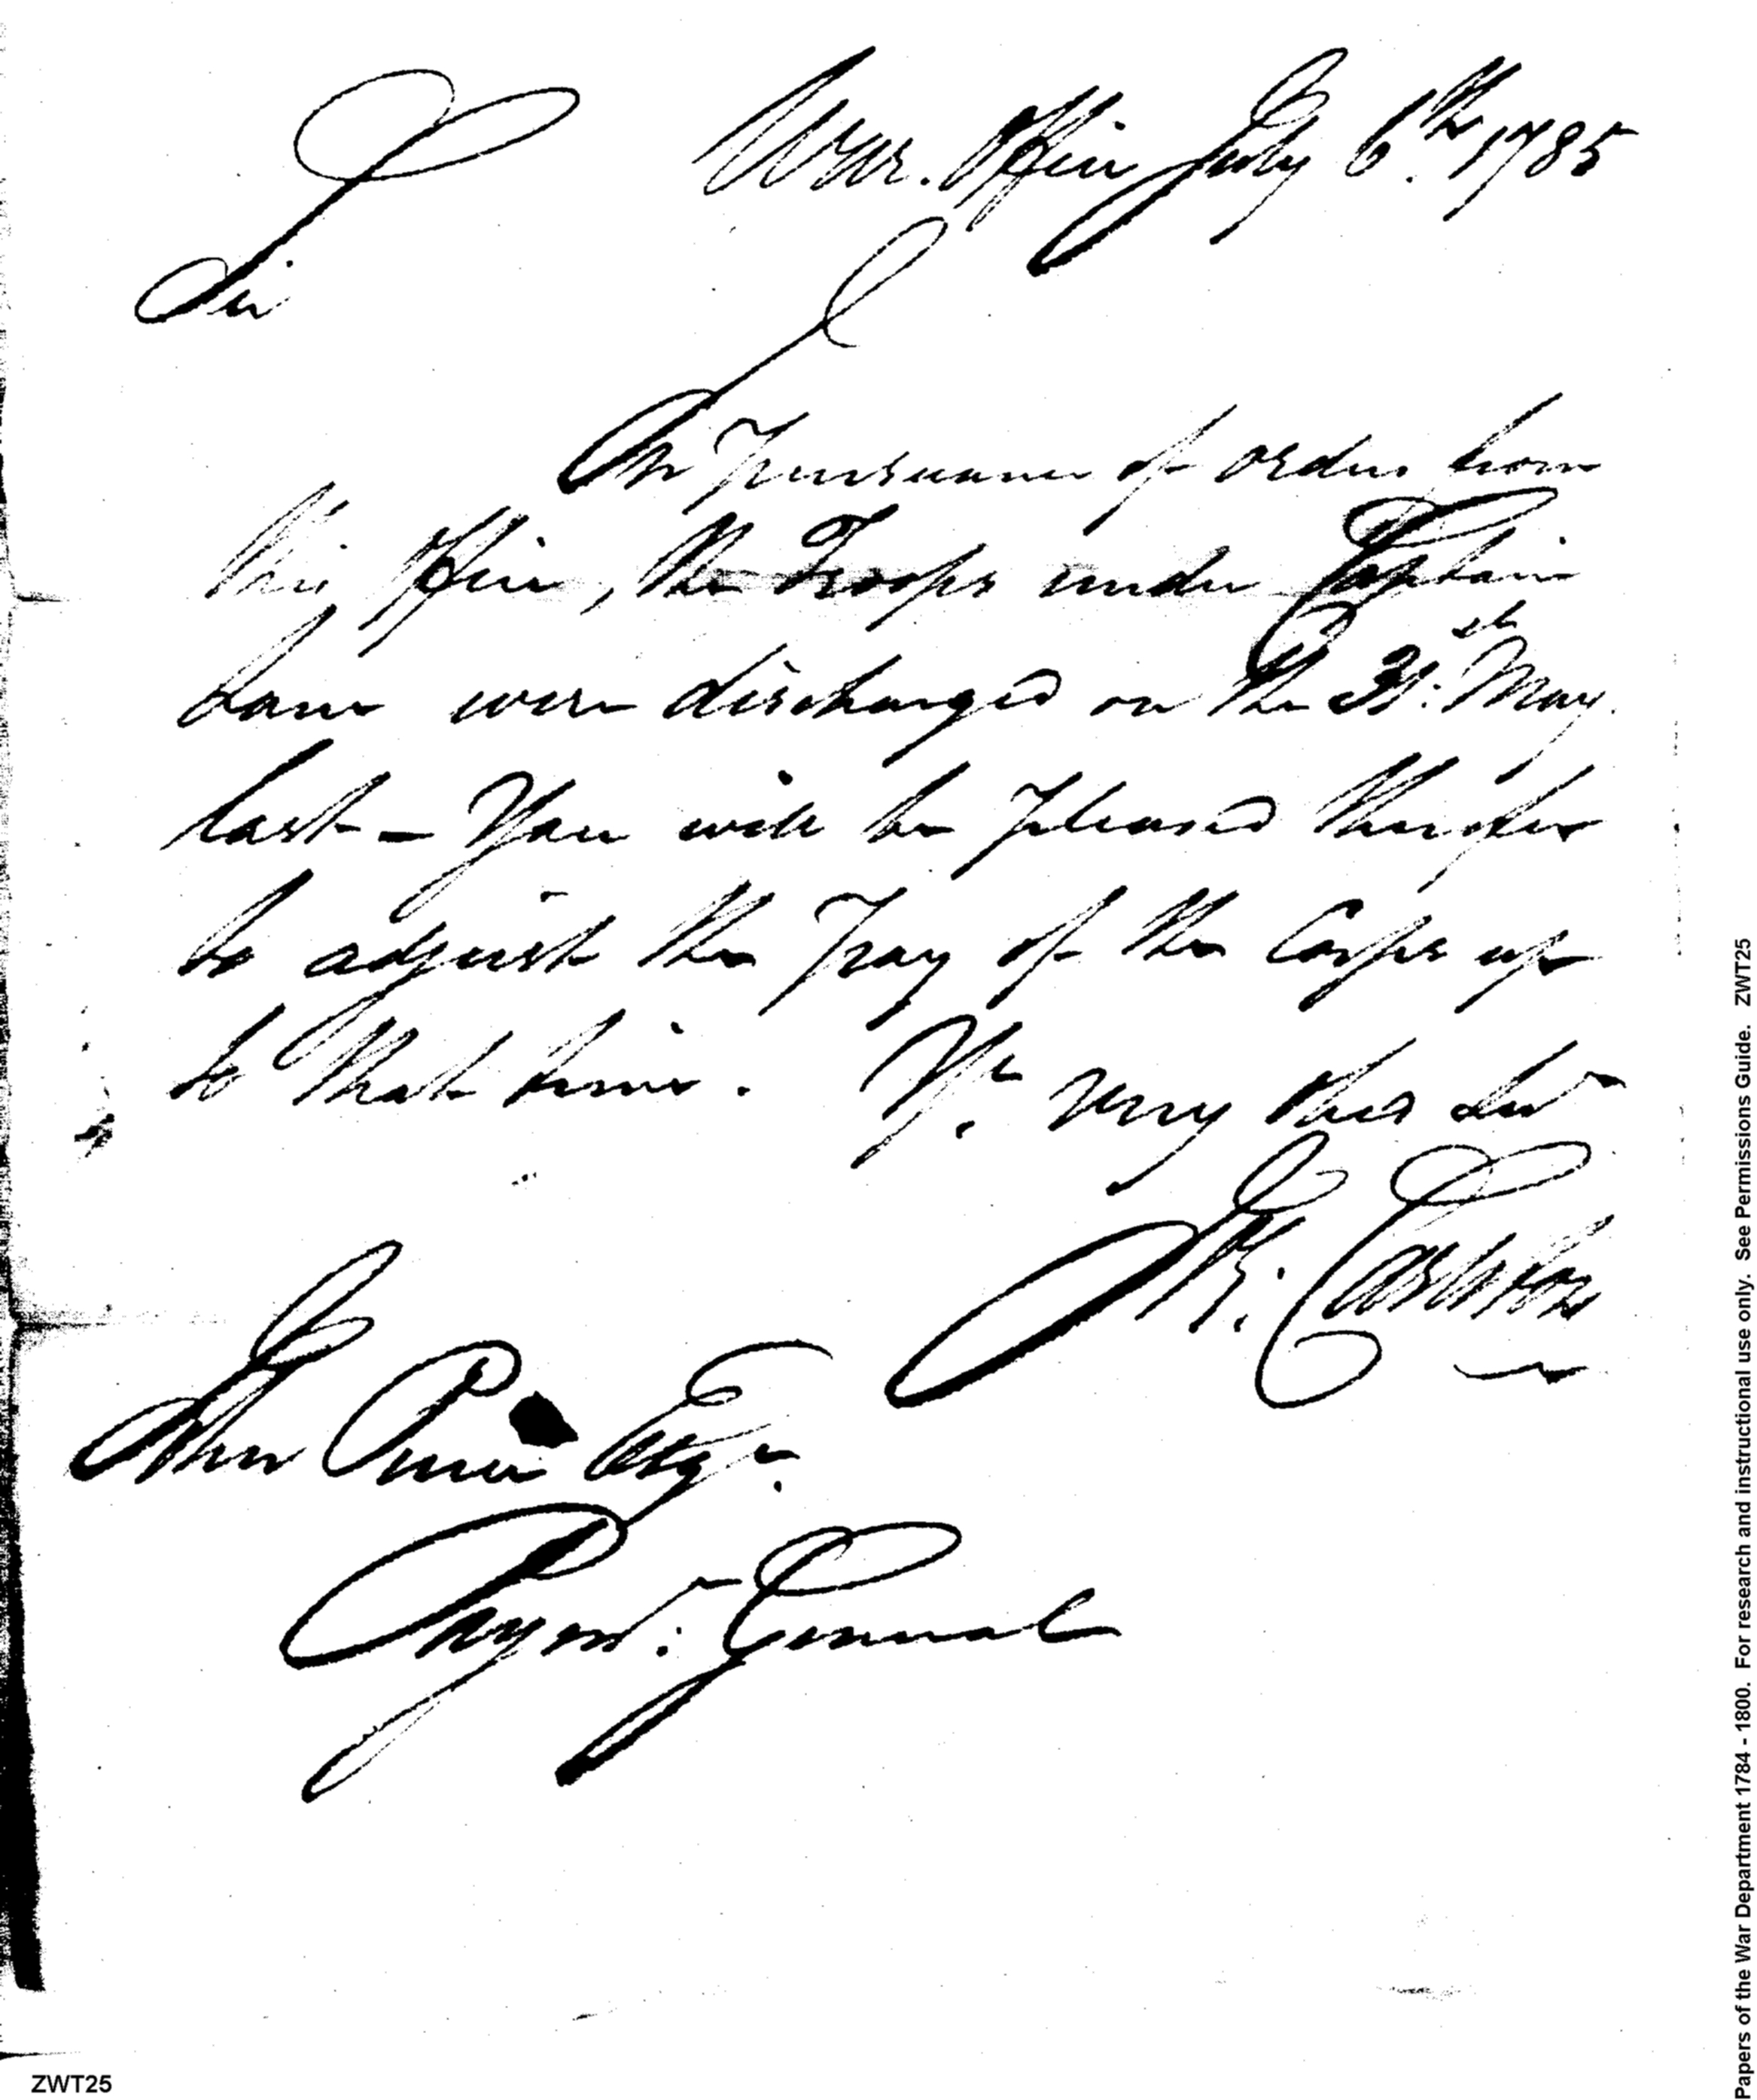 War. Office July 6th. 1785
Sir
In pursuance of orders from
this Office, the Troops under Captain
Lane were discharged on the 31st. May.
last – You will be pleased therefore
to adjust the pay of the Corps up
to that time. Yr. very Hbl Sert
J. Carleton
John Pierce Esqr.
Paymr. General
ZWT25
Papers of the War Department 1784 - 1800. For research and instructional use only. See Permissions Guide. ZWT25